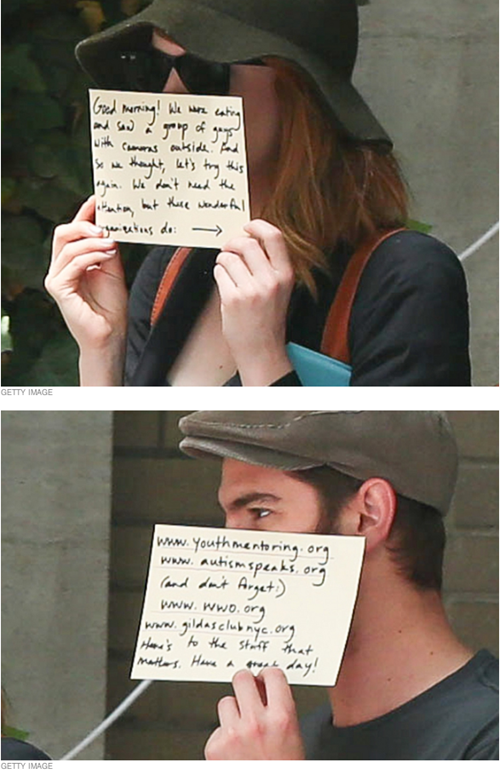 Good morning! We were eating
and saw a group of guys
with cameras outside. And
so we thought, let's try this
again. We don't need the
attention, but these wonderful
organizations do: →
GETTY IMAGE
www.youthmentoring.org
www.autismspeaks.org
(and don't forget:)
www.wwo.org
www.gildasclubnyc.org
Here's to the stuff that
matters. Have a great day!
GETTY IMAGE